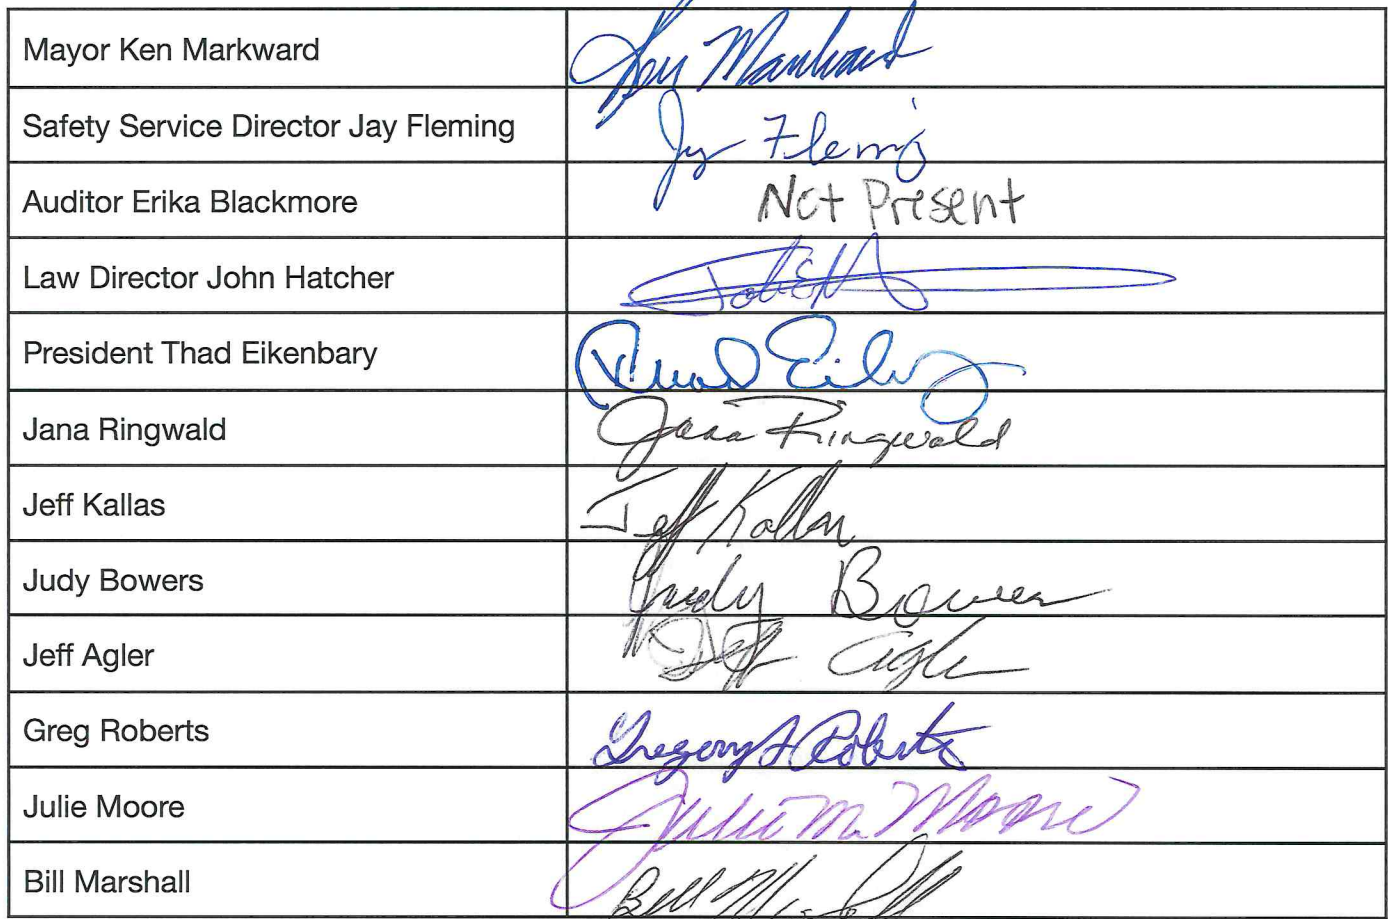 Mayor Ken Markward Ken Markward
Safety Service Director Jay Fleming Jay Fleming
Auditor Erika Blackmore Not Present
Law Director John Hatcher
President Thad Eikenbary Thad
Jana Ringwald Jana Ringwald
Jeff Kallas Jeff Kallas
Judy Bowers Judy Bowers
Jeff Agler Jeff Agler
Greg Roberts Gregory A Roberts
Julie Moore Julie M. Moore
Bill Marshall Bill Marshall